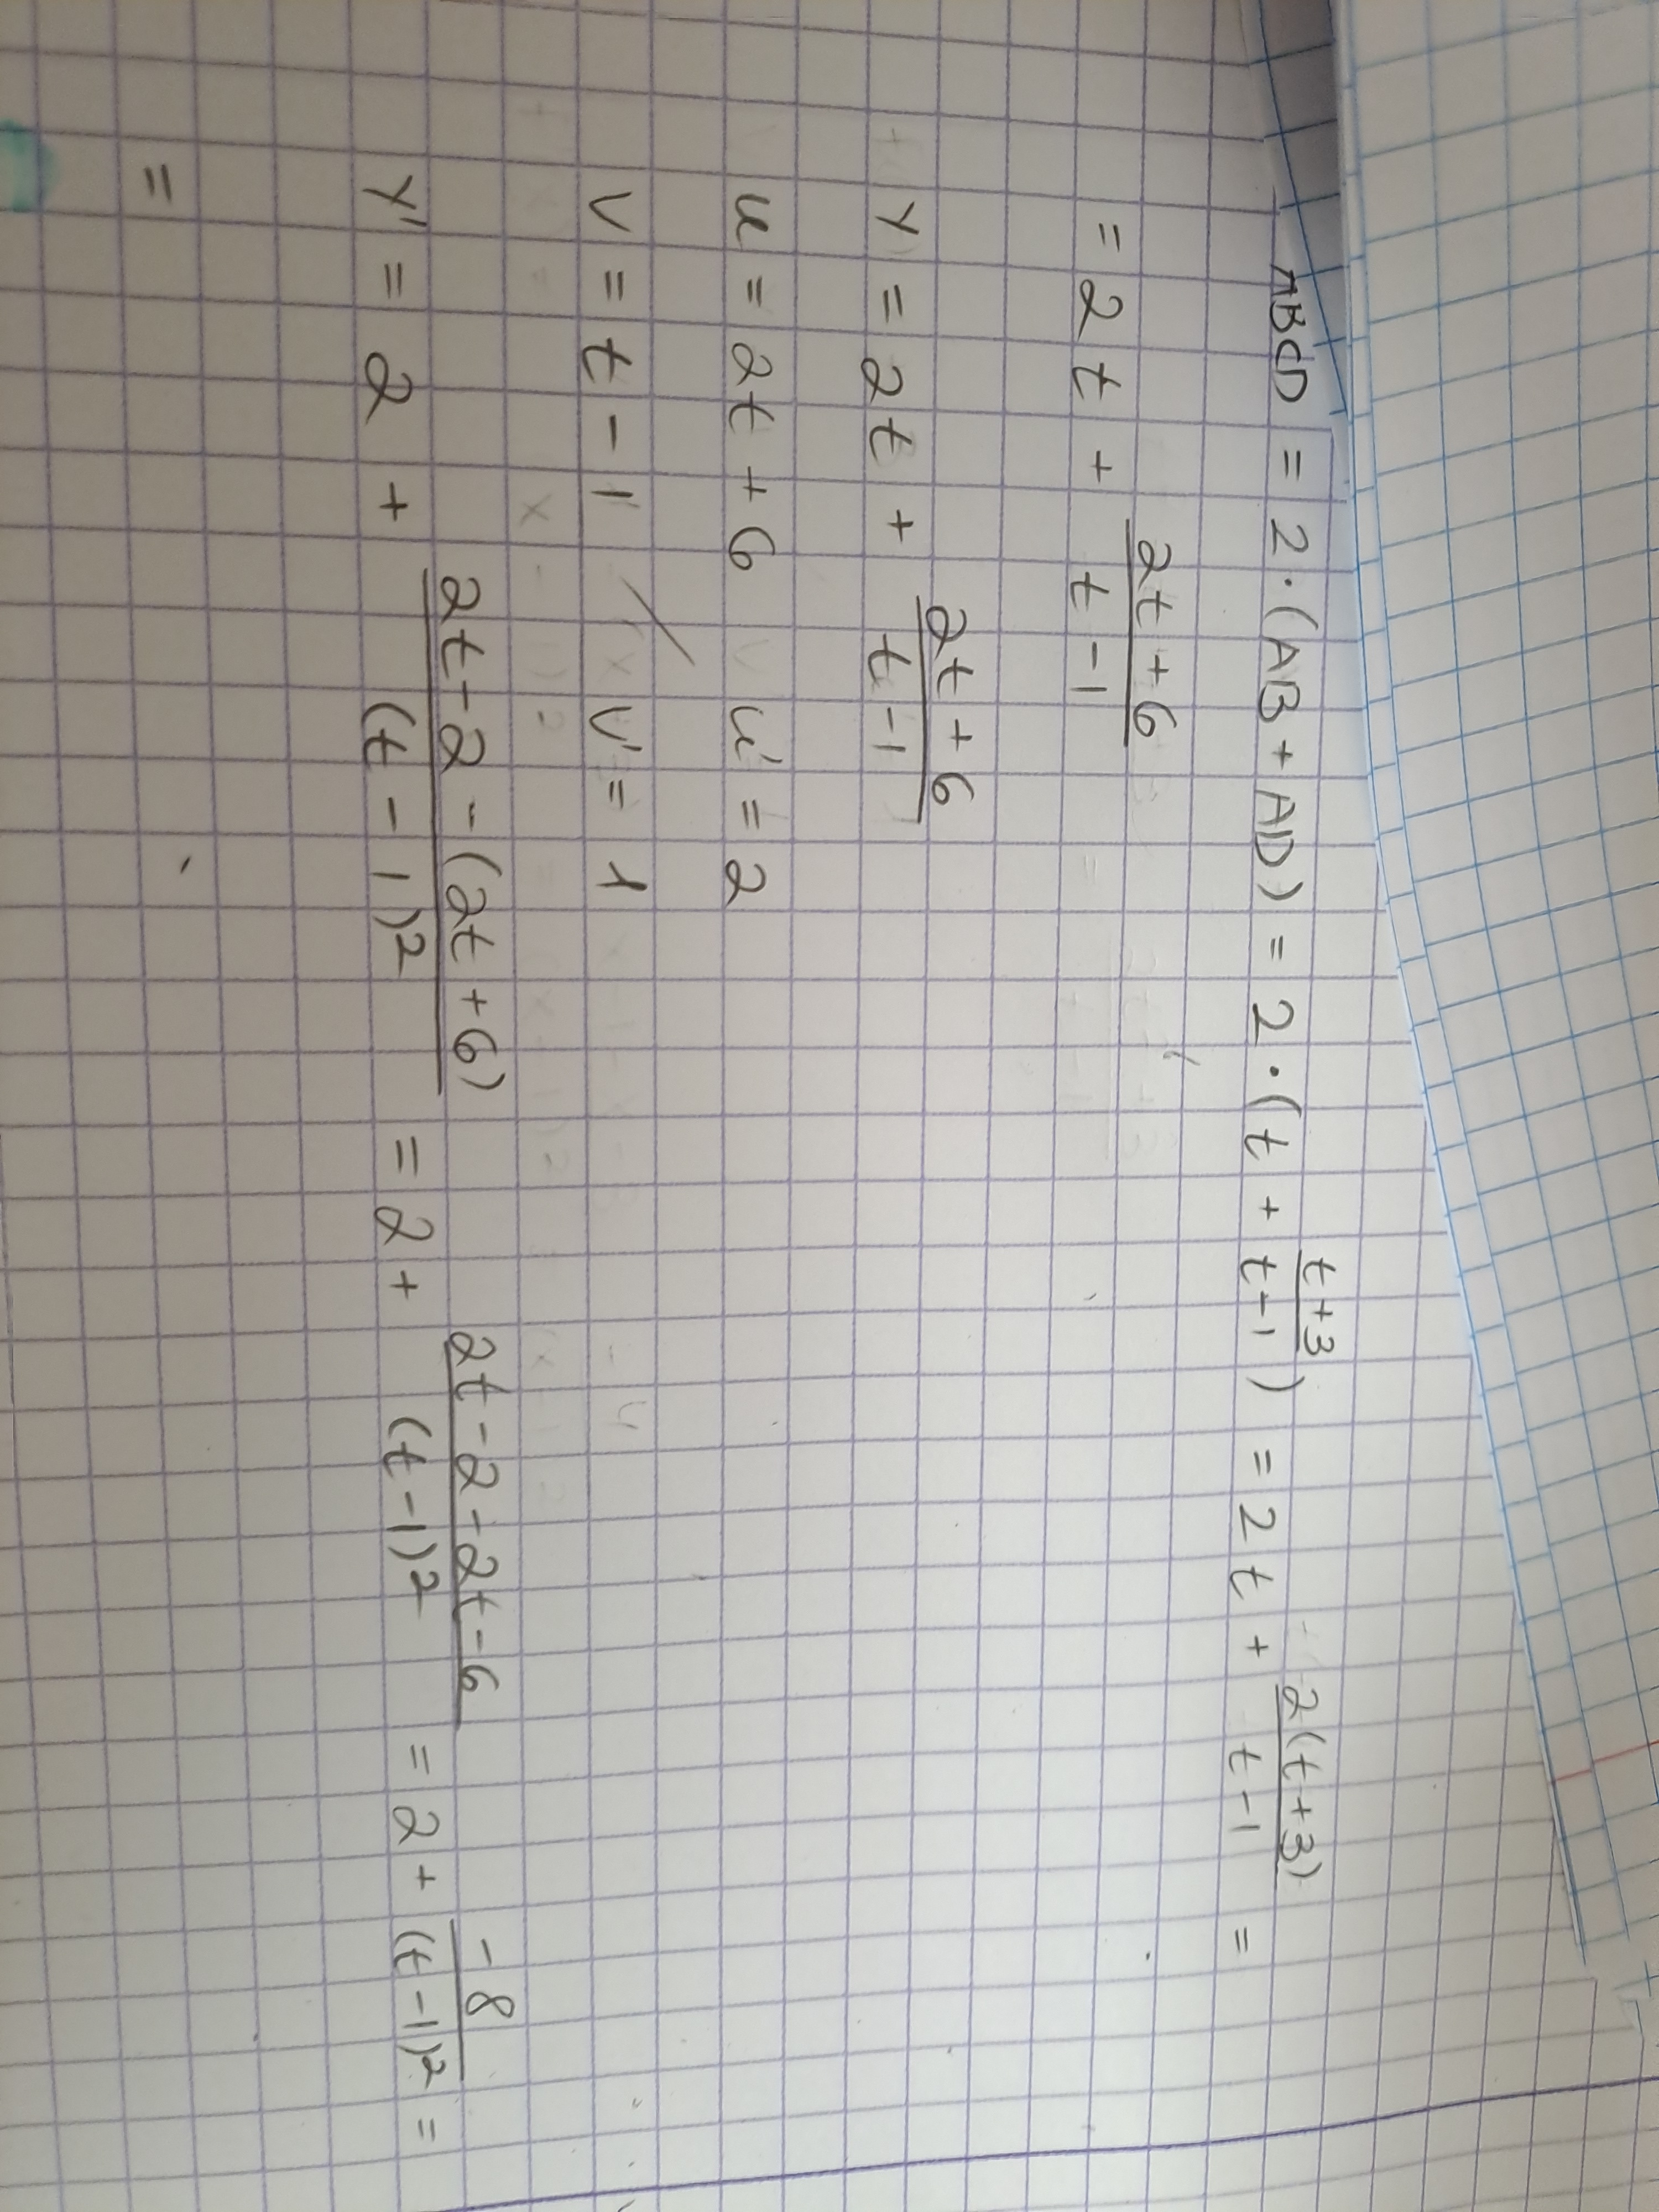 ABCD = 2·(AB + AD) = 2·(t + \frac{t+3}{t-1}) = 2t + \frac{2(t+3)}{t-1} =
= 2t + \frac{2t+6}{t-1}
Y = 2t + \frac{2t+6}{t-1}
u = 2t + 6 u' = 2
V = t - 1 V' = 1
Y' = 2 + \frac{2t-2-(2t+6)}{(t-1)^2} = 2 + \frac{2t-2-2t-6}{(t-1)^2} = 2 + \frac{-8}{(t-1)^2} =
=